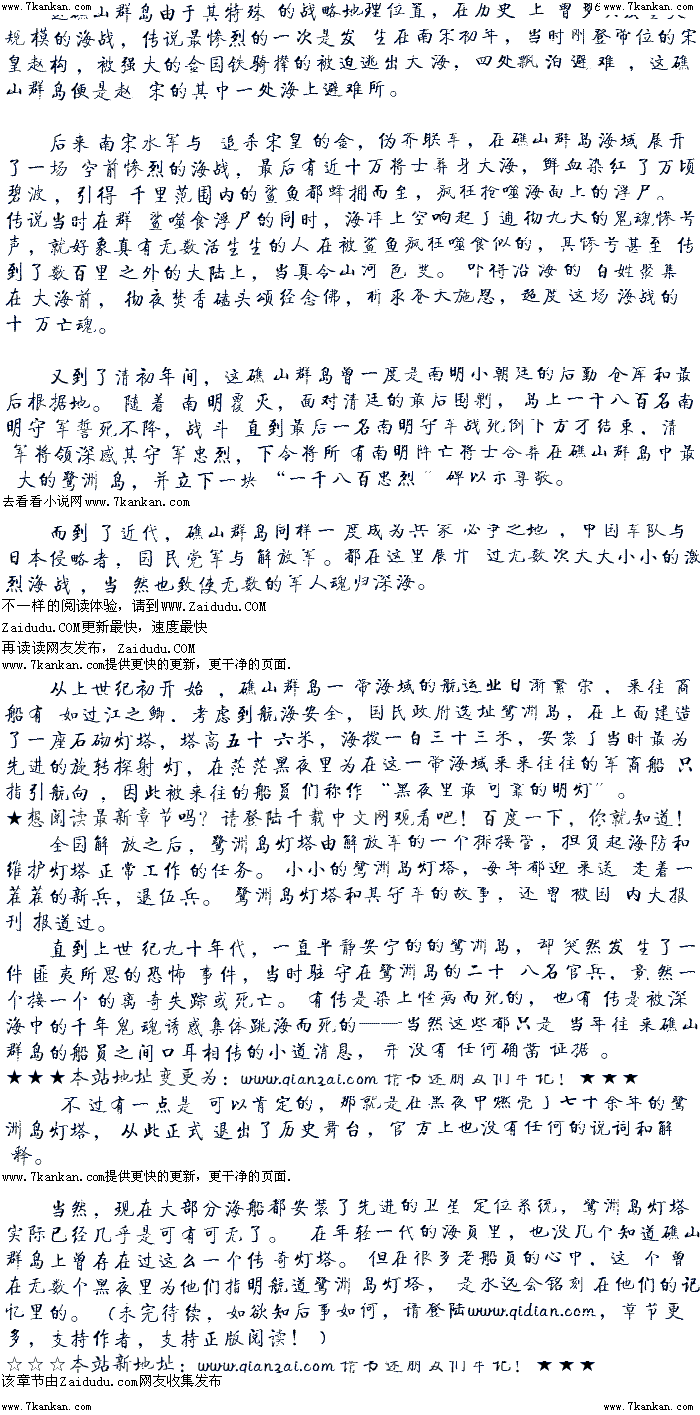 www.7kankan.com 6 www.7kankan.com
这礁山群岛由于其特殊 的战略地理位置，在历史 上 曾多
规 模的海战，传说最惨烈的一次是发 生在南宋初年，当时刚登帝位的宋
皇赵构，被强大的金国铁骑撵的被迫逃出大 海，四处飘 泊 避 难 ，这礁
山群岛便是赵 宋的其中一处海上避难所。
后来 南宋水军与 追杀宋皇 的金，伪齐联军，在礁山群岛海域 展开
了一场 空前惨烈的海战，最后有近十万将士葬身大海，鲜血染红 了 万顷
碧波 ，引得 千里范围内的鲨鱼都蜂拥而至，疯狂抢噬海面上的浮尸。
传说当时在群 鲨噬食浮尸的同时，海洋上空响起了通彻九天的鬼魂惨号
声，就好象真有无数活生生的人在被鲨鱼疯狂噬食似的，其惨号甚至 传
到了数百里 之外的大陆上，当真令山河 色 变。 吓得沿 海的 百姓聚集
在 大海前， 彻夜焚香磕头颂经念佛，祈求苍天施恩，超度 这场 海战的
十 万亡魂。
又到了清初年间，这礁 山群岛曾一度是南明小朝廷的后勤 仓库和最
后根据地。 随着 南明覆 灭，面对清廷的最后围剿， 岛上一千八百名南
明守 军誓死不降，战 斗 直到最后一名南明守军战死倒下方才结束，清
军将领深感其守 军 忠烈，下令将所 有南明阵亡将士合葬在礁山群岛中最
大的鹭洲 岛，并立下一块 “一千八百忠烈”碑以示尊敬。
去看看小说网www.7kankan.com
而到 了近代，礁山群岛同样一度成为兵 家 必争之地 ，中国军队与
日本侵略者，国民党军与 解放军。都在这里展开 过无数次大大小小的激
烈海 战 ，当 然也致使无数的军人魂归深海。
不一样的阅读体验，请到WWW.Zaidudu.COM
Zaidudu.COM更新最快，速度最快
再读读网友发布， Zaidudu.COM
www.7kankan.com提供更快的更新，更干净的页面.
从上世纪初开 始 ，礁山群岛一 带海域的航运业日渐繁荣 ，来往 商
船有 如过江之鲫．考虑到航海安全，国民政府选址鹭洲岛，在上面建造
了一座石砌灯塔，塔高五十六米，海拔一百三十三米，安装了当时最为
先进的旋转探射 灯，在茫茫黑夜里为在这一带海域来来往往的军商船 只
指引航向 ，因此被来往的船员们称作 “黑夜里最 可靠的明灯”。
★想阅读最新章节吗？请登陆千载中文网观看吧！百度一下，你就知道！
全国解 放之后，鹭洲岛灯塔由解放军的一个排接管，担负起海防和
维护灯塔 正常工作的任务。 小小的鹭洲岛灯塔，每年都迎 来送 走着一
茬茬的新兵，退伍兵。 鹭洲岛灯塔和其守军的故事，还曾被国 内大报
刊 报道过。
直到上世 纪九十年代，一直平静安宁的的鹭洲岛，却 突然发 生了一
件 匪 夷所思的恐怖 事件，当时驻 守在鹭洲岛的二十 八名官兵，竟然一
个接一个 的离 奇失踪或死亡。 有传是染上怪病而死的，也有 传是被深
海中的千年鬼魂诱惑集体跳海而死的——当然这些都只是 当年往 来礁山
群岛的船员之间口耳相传的小道消息，并没有任何确凿证据 。
★★★本站地址变更为：www.qianzai.com 情书还朋友们牢记！★★★
不过有一点是 可以肯定的，那就是在黑夜中燃亮了七十余年的鹭
洲岛灯塔， 从此正式退出了历史舞台，官方上也没有任何的说词和解
释。
www.7kankan.com提供更快的更新，更干净的页面.
当然，现在大部分海船都安装了先进的卫星 定位系统，鹭洲岛灯塔
实际已经几乎是可有可无了。 在年轻一代的海员里，也没几个知道礁山
群岛上曾存在过这么一个传 奇灯塔。 但在很多老船员的心中，这 个 曾
在无数个黑夜里为他们指明航道鹭洲 岛灯塔， 是永远会铭刻 在他们的记
忆里的。（未完待续，如欲知后事如何，请登陆www.qidian.com，章节更
多，支持作者，支持正版阅读！）
☆☆☆本站新地址：www.qianzai.com 情书还朋友们牢记！★★★
该章节由Zaidudu.com网友收集发布
www.7kankan.com www.7kankan.com